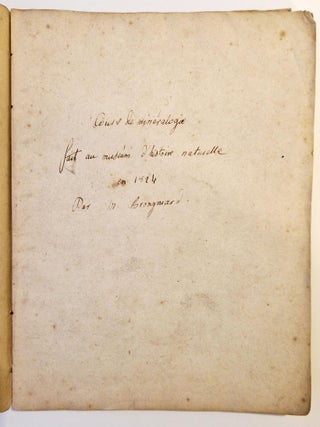 Cours de minéralogie
fait au muséum d'histoire naturelle
en 1824
Par Mr Brongniard.